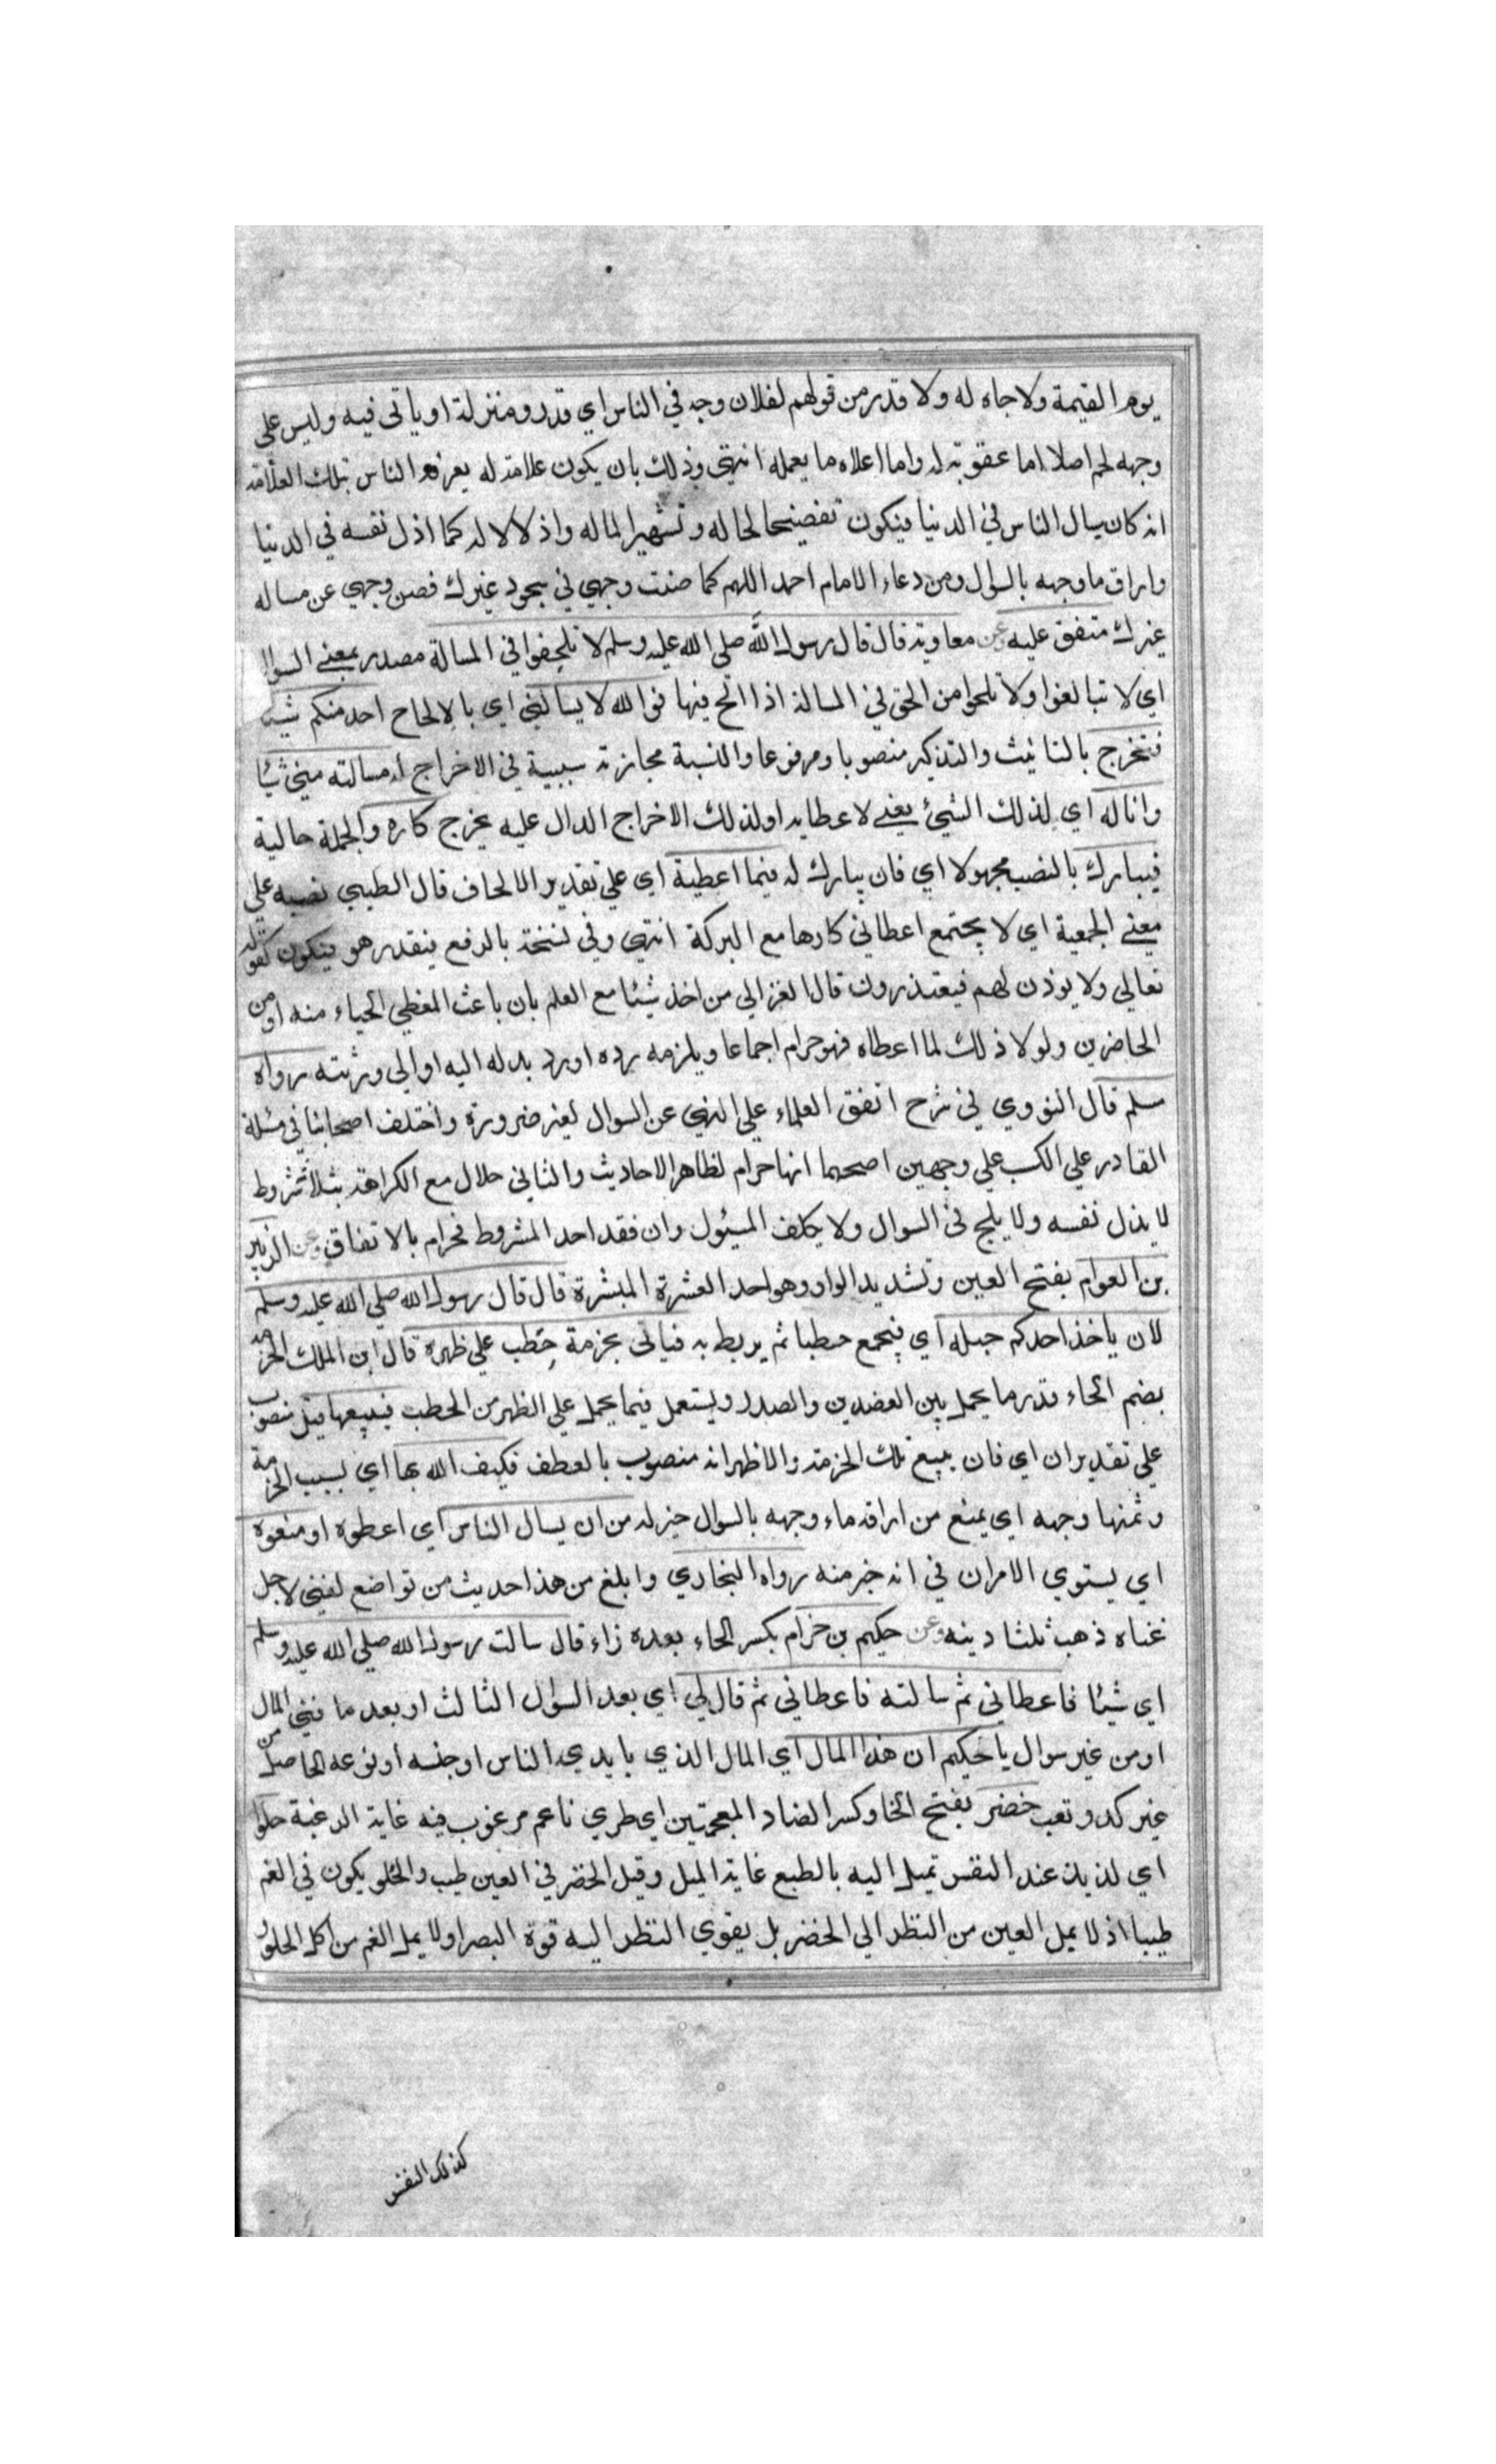 يوم القيمة ولا جاه له ولا قدر من قولهم لفلان وجه في الناس اي قدر ومنزلة او ياتى فيه وليس على
وجهه لحم اصلا اما عقوبة له واما اعلاه ما يعمله انتهى وذلك بان يكون علامة له يعرفه الناس بتلك العلامة
انه كان يسال الناس في الدنيا فيكون تفضيحا لحاله وتشهيرا لماله واذلالا له كما اذل نفسه في الدنيا
واراق ما وجهه بالسوال ومن دعاء الامام احمد اللهم كما صنت وجهي في سجود غيرك فصن وجهي عن مساله
غيرك متفق عليه عن معاوية قال قال رسول الله صلى الله عليه وسلم لا تلحفوا في المسالة مصدر بمعنى السوال
اي لا تبالغوا ولا تلحوا من الحق في المسالة اذا الح فيها فوالله لا يسالني اي بالالحاح احد منكم شيئا
فتخرج بالتانيث والتذكير منصوبا ومرفوعا والنسبة مجازية سببية في الاخراج له مسالته مني شيئا
وانا له اي لذلك الشيئ يعنى لاعطايه او لذلك الاخراج الدال عليه يخرج كاره والجملة حالية
فيبارك بالنصب مجهولا اي فان يبارك له فيما اعطية اي على تقدير الالحاف قال الطيبي نصبه على
معنى الجمعية اي لا يجتمع اعطائي كارها مع البركة انتهى وفي نسخة بالرفع فيقدر هو فيكون كقوله
تعالى ولا يوذن لهم فيعتذرون قال الغزالي من اخذ شيئا مع العلم بان باعث المعطي الحياء منه او من
الحاضرين ولولا ذلك لما اعطاه فهو حرام اجماعا ويلزمه رده او رد بدله اليه او الى ورثته رواه
مسلم قال النووي في شرح اتفق العلماء على النهي عن السوال لغير ضرورة واختلف اصحابنا في مسئلة
القادر على الكسب على وجهين اصحهما انها حرام لظاهر الاحاديث والثاني حلال مع الكراهة بثلاث شروط
لا يذل نفسه ولا يلح في السوال ولا يكلف المسئول وان فقد احد الشروط فحرام بالاتفاق وعن الزبير
بن العوام بفتح العين وتشديد الواو وهو احد العشرة المبشرة قال قال رسول الله صلى الله عليه وسلم
لان ياخذ احدكم حبله اي فيجمع حطبا ثم يربط به فياتى بحزمة حطب على ظهره قال ابن الملك الحزمة
بضم الحاء قدر ما يحمل بين العضدين والصدر ويستعمل فيما يحمل على الظهر من الحطب فيبيعها قيل منصوب
على تقدير ان اي فان يبيع تلك الحزمة والاظهر انه منصوب بالعطف فكيف الله بها اي بسبب الحزمة
وثمنها وجهه اي يمنع من اراقة ماء وجهه بالسوال خير له من ان يسال الناس اي اعطوه او منعوه
اي يستوي الامران في انه خير منه رواه البخاري وابلغ من هذا حديث من تواضع لغني لاجل
غناه ذهب ثلثا دينه وعن حكيم بن حزام بكسر الحاء بعده زاء قال سالت رسول الله صلى الله عليه وسلم
اي شيئا فاعطاني ثم سالته فاعطاني ثم قال لي اي بعد السوال الثالث او بعد ما فني المال
او من غير سوال يا حكيم ان هذا المال اي المال الذي بايدي الناس او جنسه او نوعه الحاصل من
غير كد وتعب خضر بفتح الخا وكسر الضاد المعجمتين اي طري ناعم مرغوب فيه غاية الرغبة حلو
اي لذيذ عند النفس تميل اليه بالطبع غاية الميل وقيل الخضر في العين طيب والحلو يكون في الفم
طيبا اذ لا يمل العين من النظر الى الخضر بل يقوي النظر اليه قوة البصر اولا يمل الفم من اكل الحلو و
كذلك النفس